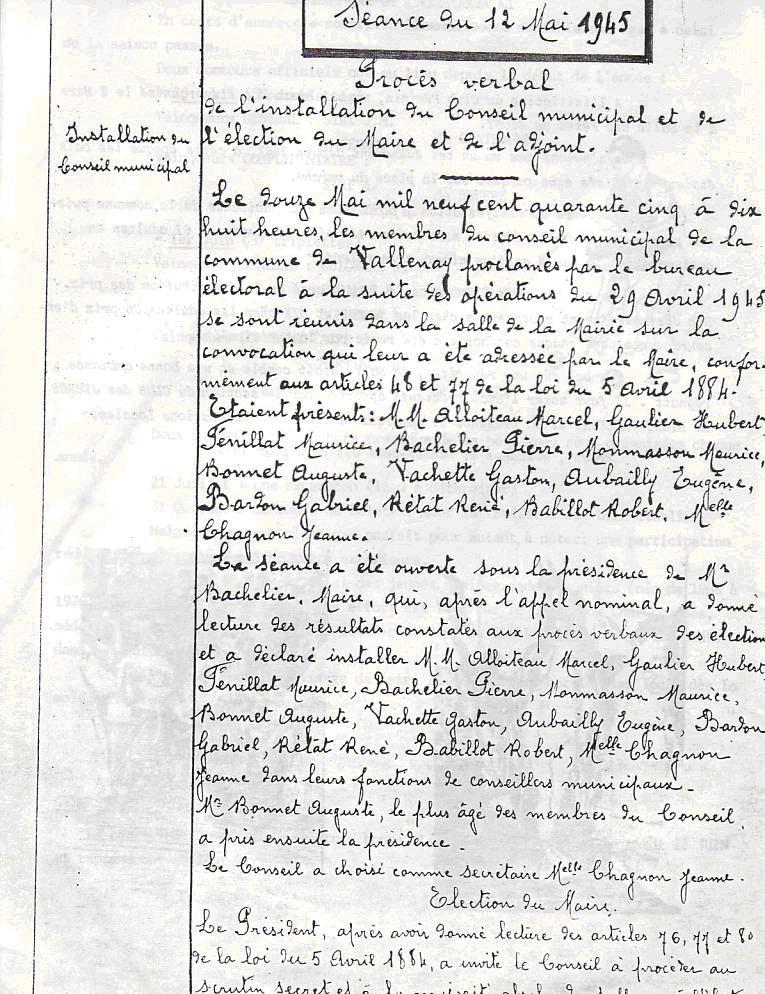 Séance du 12 Mai 1945
Procès verbal
de l'installation du Conseil municipal et de
l'élection du Maire et de l'adjoint.
Installation du
Conseil municipal
Le douze Mai mil neuf cent quarante cinq à dix
huit heures, les membres du conseil municipal de la
commune de Vallenay proclamés par le bureau
électoral à la suite des opérations du 29 Avril 1945
se sont réunis dans la salle de la Mairie sur la
convocation qui leur a été adressée par le Maire, confor-
mément aux articles 48 et 77 de la loi du 5 Avril 1884.
Etaient présents: M.M. Alloiteau Marcel, Gaulier Hubert,
Fénillat Maurice, Bachelier Pierre, Monmasson Maurice,
Bonnet Auguste, Vachette Gaston, Aubailly Eugène,
Bardon Gabriel, Rétat René, Babillot Robert, Melle
Chagnon Jeanne.
La séance a été ouverte sous la présidence de Mr
Bachelier, Maire, qui, après l'appel nominal, a donné
lecture des résultats constatés aux procès verbaux des élection
et a déclaré installer M.M. Alloiteau Marcel, Gaulier Hubert
Fénillat Maurice, Bachelier Pierre, Monmasson Maurice,
Bonnet Auguste, Vachette Gaston, Aubailly Eugène, Bardon
Gabriel, Rétat René, Babillot Robert, Melle Chagnon
Jeanne dans leurs fonctions de conseillers municipaux.
Mr Bonnet Auguste, le plus âgé des membres du Conseil
a pris ensuite la présidence.
Le Conseil a choisi comme secrétaire Melle Chagnon Jeanne.
Election du Maire.
Le Président, après avoir donné lecture des articles 76, 77 et 80
de la loi du 5 Avril 1884, a invité le Conseil à procéder au
scrutin secret et à la